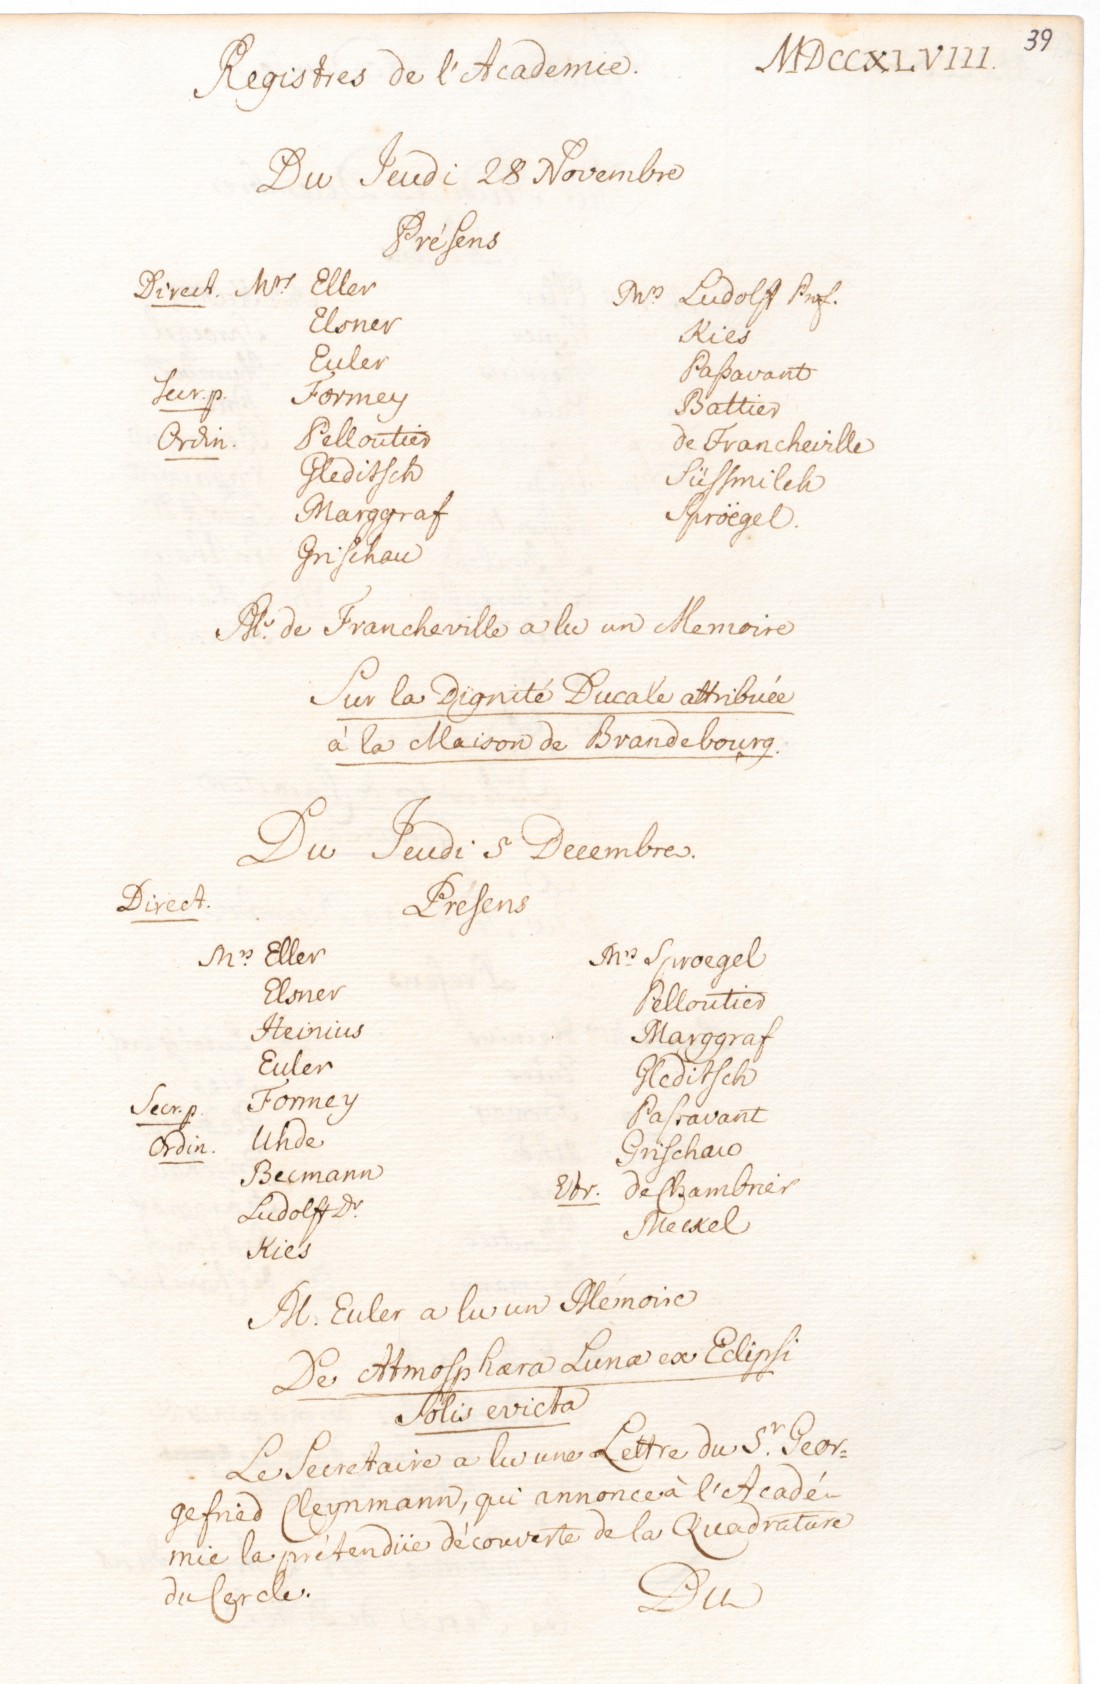 39
Registres de l'Academie. MDCCXLVIII.
Du Jeudi 28 Novembre
Présens
Direct. Mrs Eller
Elsner
Euler
Secr. p. Formey
Ordin. Pelloutier
Gleditsch
Marggraf
Grischau
Mrs Ludolff Prof.
Kies
Paßavant
Battier
de Francheville
Süssmilch
Sproëgel.
Mr. de Francheville a lu un Memoire
Sur la Dignité Ducale attribuée
à la Maison de Brandebourg.
Du Jeudi 5 Decembre.
Direct. Présens
Mrs Eller
Elsner
Heinius
Euler
Secr. p. Formey
Ordin. Uhde
Becmann
Ludolff Dr.
Kies
Mrs Sproegel
Pelloutier
Marggraf
Gleditsch
Paßavant
Grischau
Etr. de Chambrier
Meckel
M. Euler a lu un Mémoire
De Atmosphæra Lunæ ex Eclipsi
Solis evicta
Le Secretaire a lu une Lettre du Sr. Geor=
gefried Cleynmann, qui annonce à l'Acadé-
mie la prétendüe découverte de la Quadrature
du Cercle.
Du